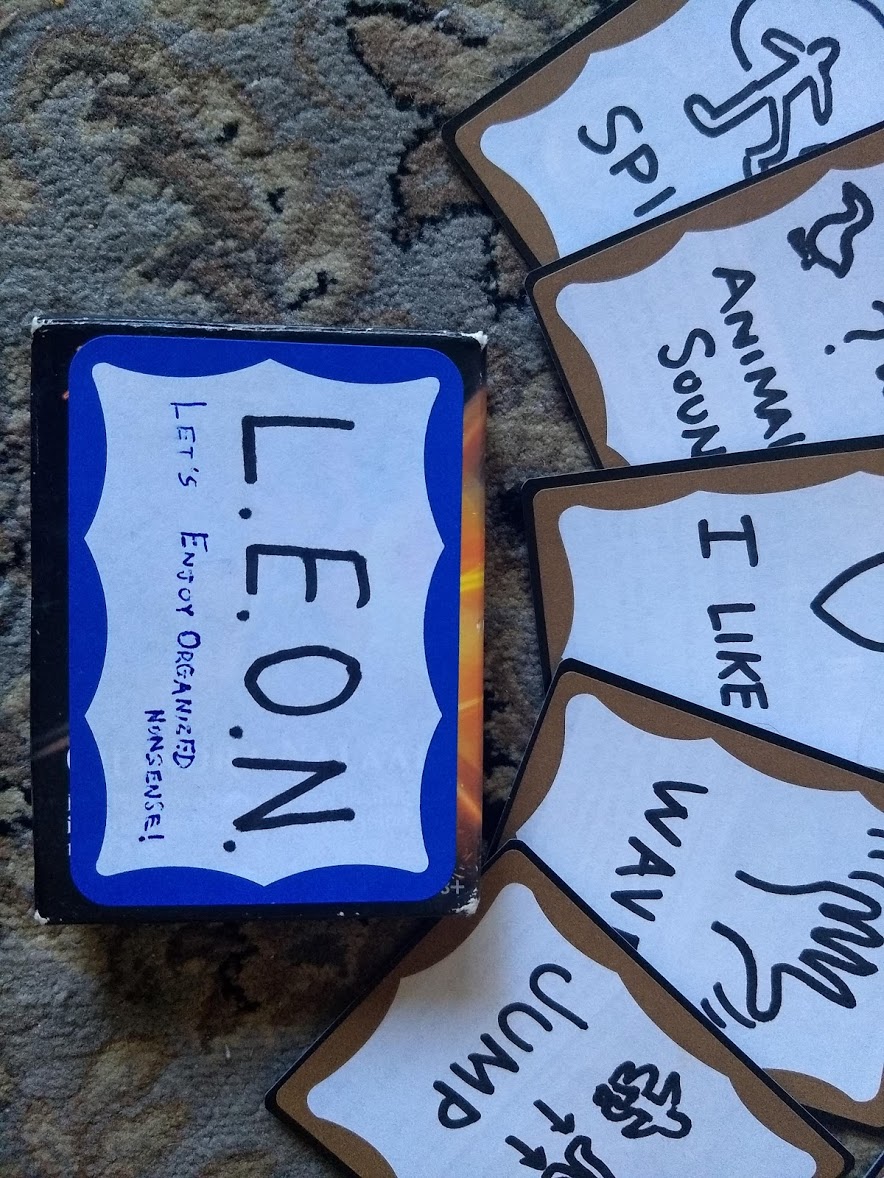 L.E.O.N.
LET'S ENJOY ORGANIZED
NONSENSE!
SPI
ANIMA
SOUN
I LIKE
WAV
JUMP